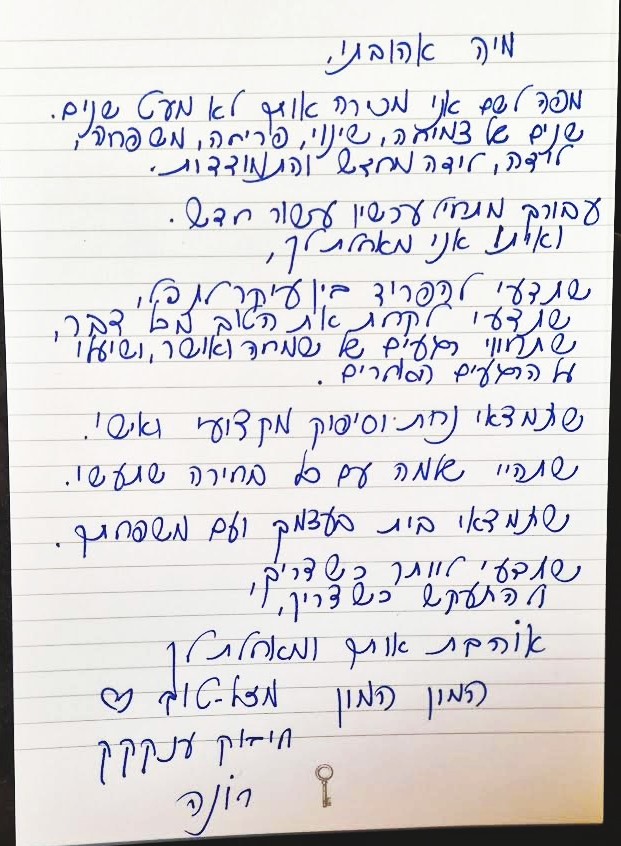 מיה אהובתי,
מפה לשם אני מכירה אותך לא מעט שנים.
שנים של צמיחה, שינוי, פריחה, משפחה,
לידה, לידה מחדש והתמודדות.
עבורך מתחיל עכשיו עשור חדש.
ואיתו אני מאחלת לך,
שתדעי להפריד בין עיקר לתפל,
שתדעי לקחת את הטוב מכל דבר,
שתחווי רגעים של שמחה ואושר, ושיעלו
על הרגעים האחרים.
שתמצאי נחת וסיפוק מקצועי ואישי.
שתהיי שלמה עם כל בחירה שתעשי.
שתמצאי בית בעצמך ועם משפחתך.
שתדעי לוותר כשצריך,
ולהתעקש כשצריך,
אוהבת אותך ומאחלת לך
המון המון מזל-טוב ♡
חיבוק ענקקק
רונה